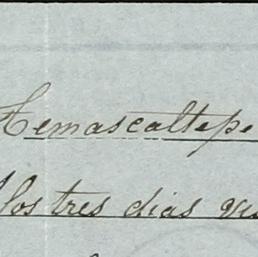 Temascaltepe
los tres dias que